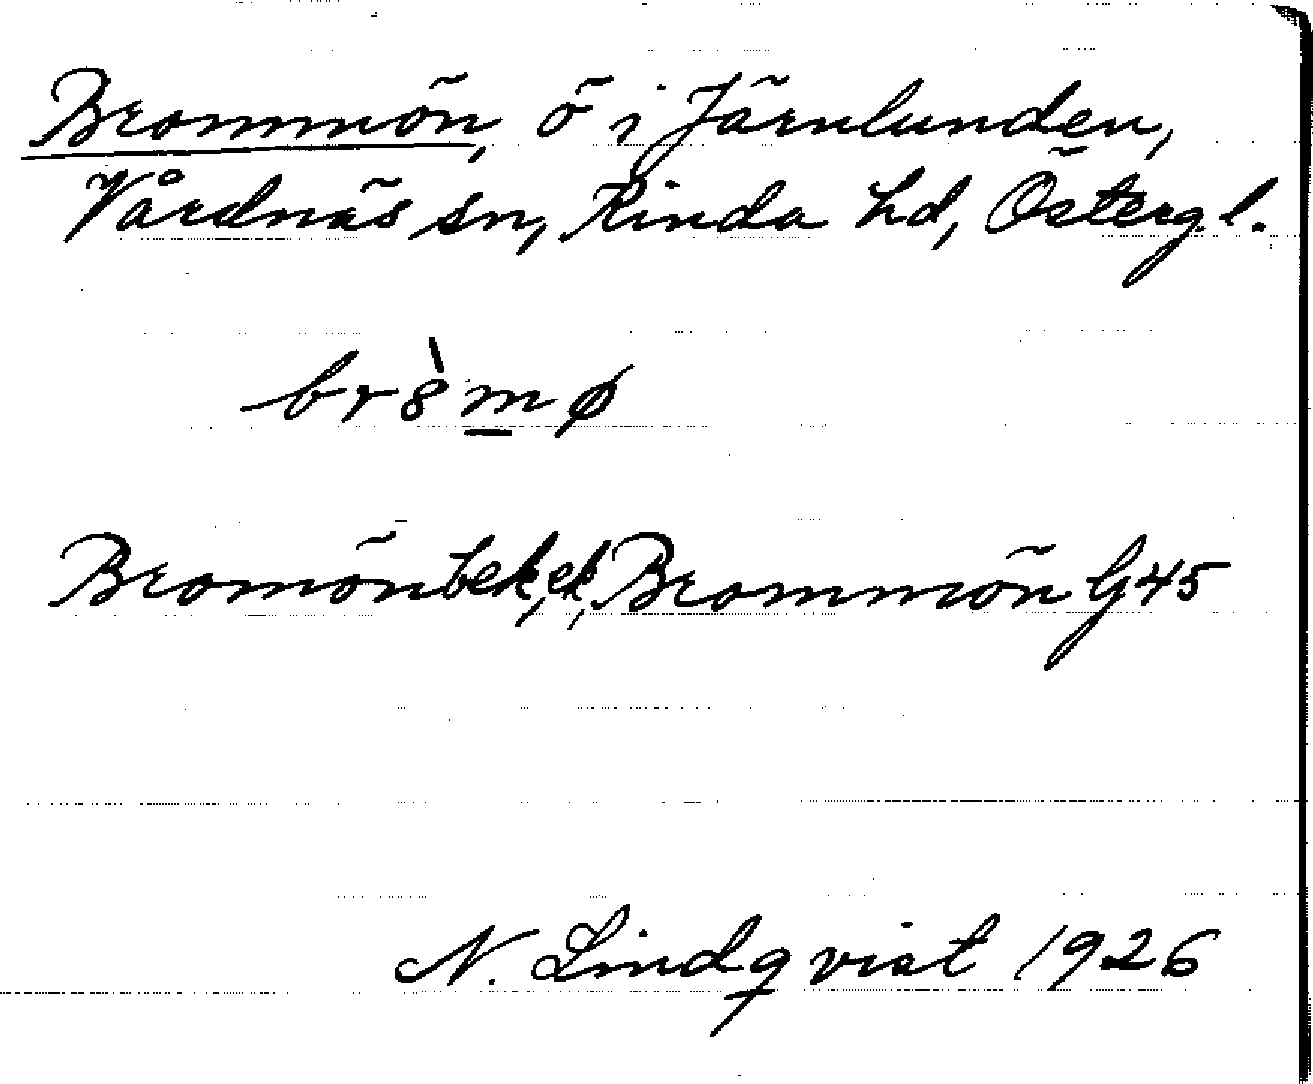 Brommön, ö i Järnlunden,
Vårdnäs sn, Kinda hd, Östergl.
br8̀m̲ø
Bromön bek, ek, Brommön G45
N. Lindqvist 1926